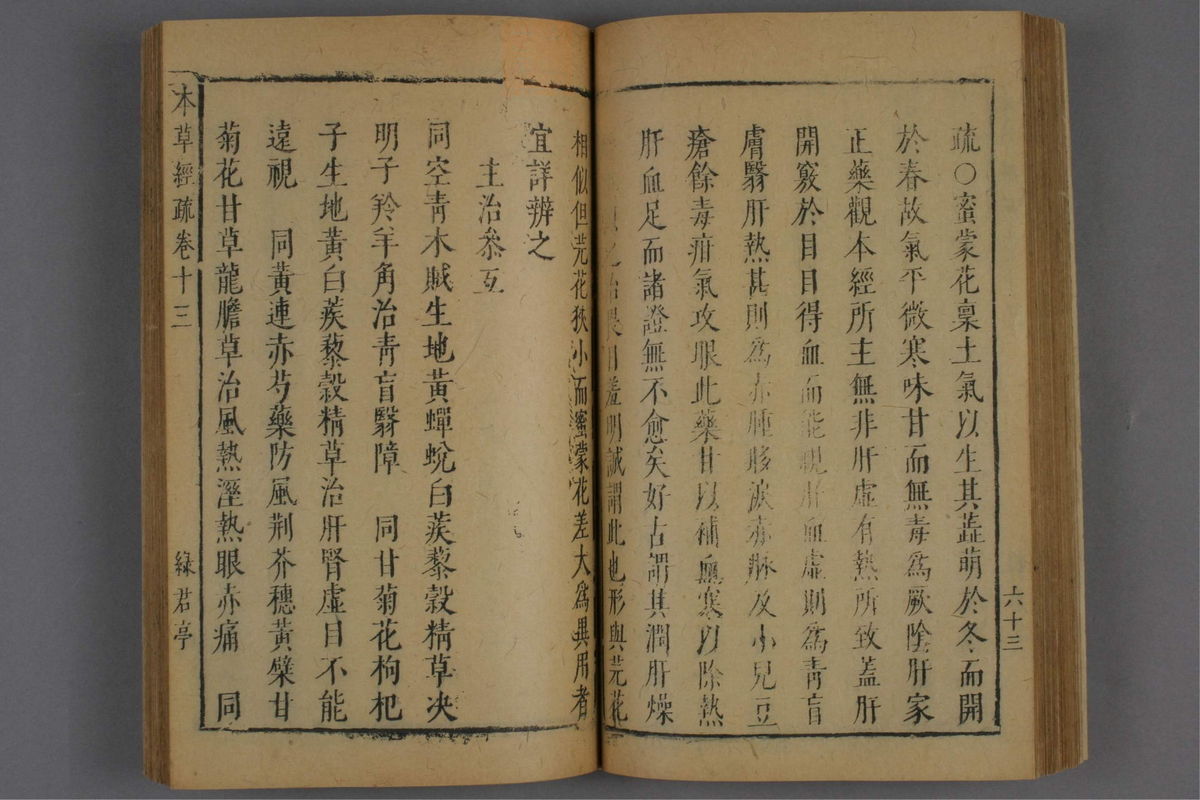 疏○蜜蒙花稟土氣以生其蕋萌於冬而開
於春故氣平微寒味甘而無毒爲厥陰肝家
正藥觀本經所主無非肝虛有熱所致蓋肝
開竅於目目得血而能視肝血虛則爲青盲
膚翳肝熱甚則爲赤腫眵淚赤脉及小兒豆
瘡餘毒疳氣攻眼此藥甘以補血寒以除熱
肝血足而諸證無不愈矣好古謂其潤肝燥
目羞明誠謂此也形與芫花
相似但芫花狹小而蜜蒙花差大爲異用者
宜詳辨之
主治叅互
同空青木賊生地黃蟬蛻白蒺藜穀精草决
明子羚羊角治青盲翳障 同甘菊花枸杞
子生地黃白蒺藜穀精草治肝腎虛目不能
遠視 同黃連赤芍藥防風荆芥穗黃檗甘
菊花甘草龍膽草治風熱溼熱眼赤痛 同
本草經疏卷十三
綠君亭
六十三